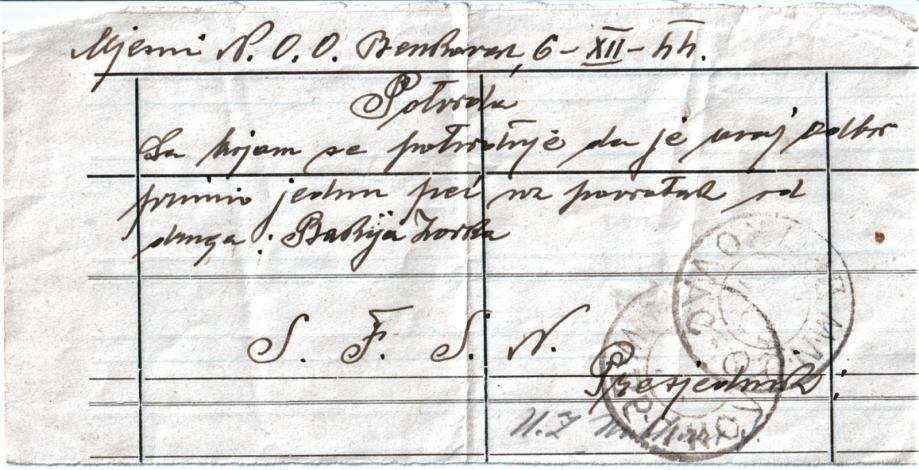 Mjesni N. O. O. Benkovac, 6-XII-44.
Potvrda
Sa kojom se potvrđuje da je ovaj odbor
primio jednu peć uz povratak od
druga. Bakija Zorka
S. F. S. N.
Presjednik: